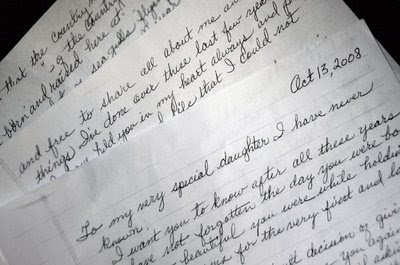 that the country
of the country
born and raised here at
sea gulls
and free to share all about me an
things I've done over these last few yea
held you in my heart always and it
life that I could not
Oct 13, 2008
To my very special daughter I have never
known,
I want you to know after all these years
have not forgotten the day you were bo
beautiful you were while holdin
for the very first and la
decision of givi
you again